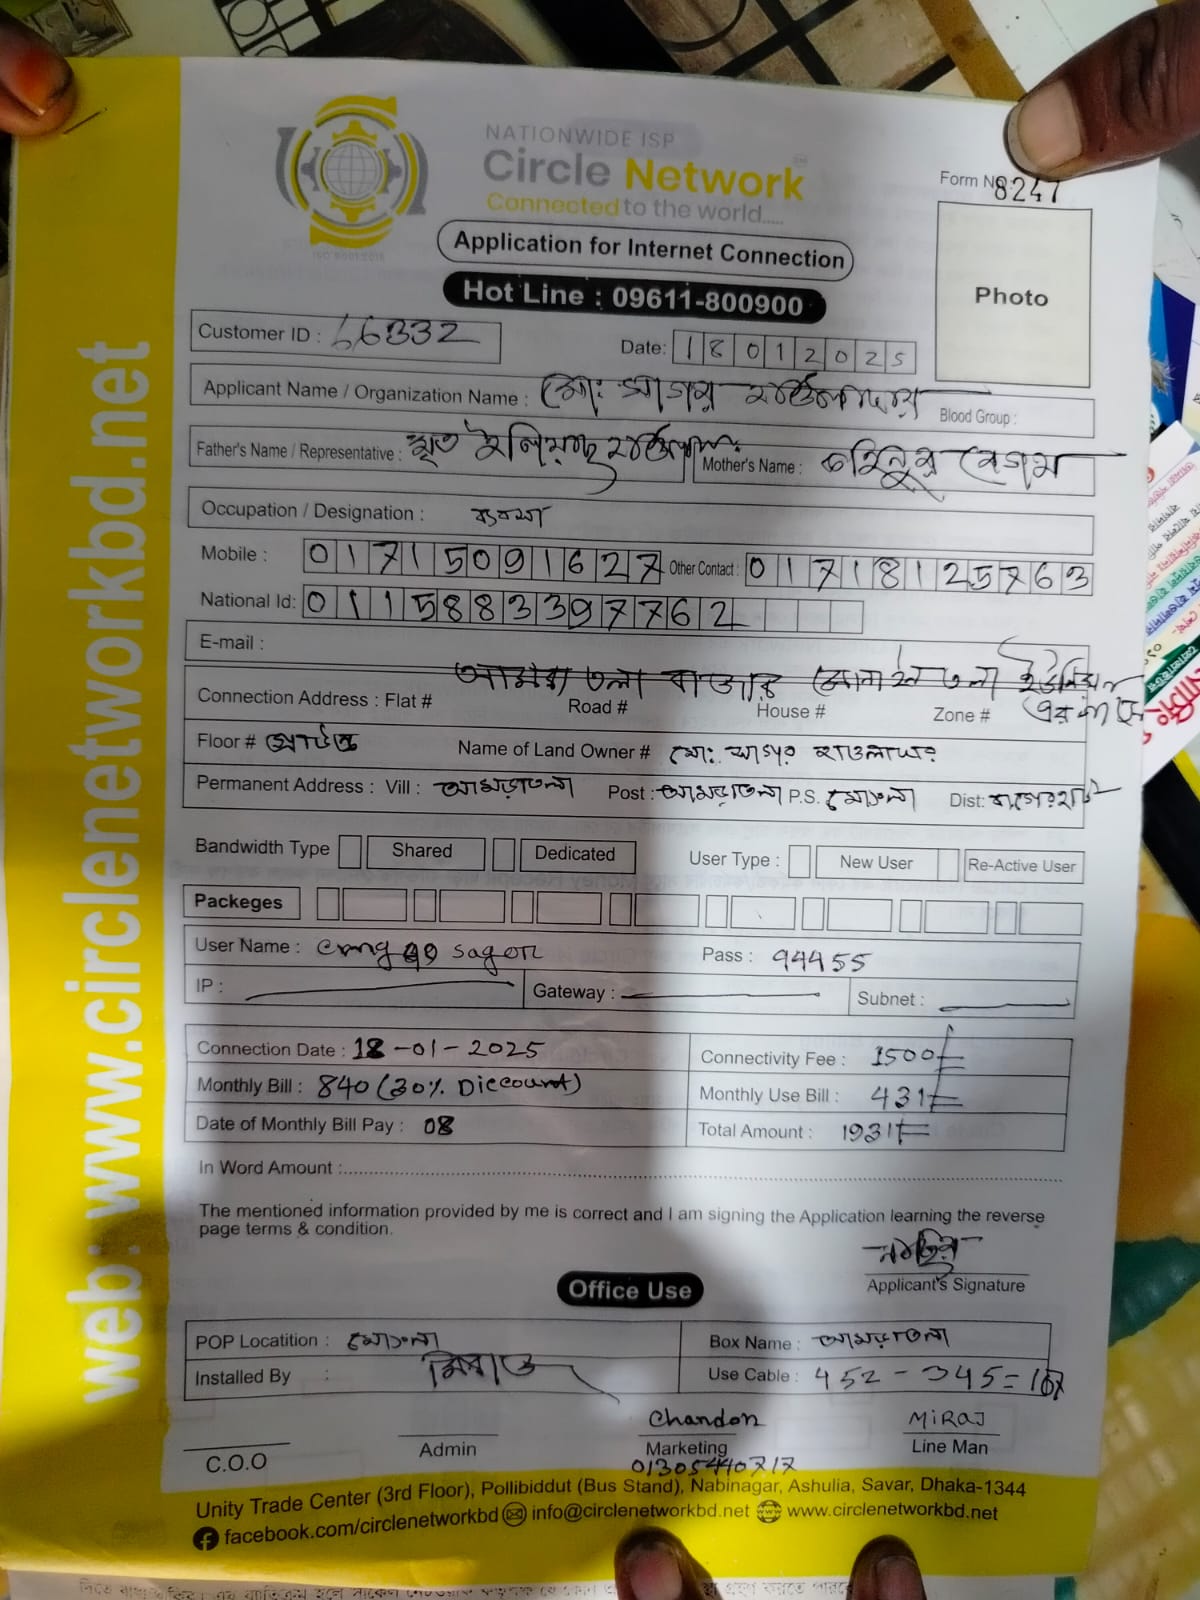 NATIONWIDE ISP
Circle Network
Connected to the world.....
ISO 9001:2015
Form No: 8247
Application for Internet Connection
Hot Line : 09611-800900
Photo
Customer ID : 66332
Date: 18012025
Applicant Name / Organization Name : মোঃ সাগর হাওলাদার Blood Group :
Father's Name / Representative : মৃত ইলিয়াছ হাওলাদার Mother's Name : বেগম
Occupation / Designation : ব্যবসা
Mobile : 01715091627 Other Contact : 01718125763
National Id: 0115883397762
E-mail :
আমরা তলা বাজার ইউনিয়ন
Connection Address : Flat # Road # House # Zone #
Floor # Name of Land Owner # মোঃ সাগর হাওলাদার
Permanent Address : Vill : আমড়াতলা Post : আমড়াতলা P.S. মোংলা Dist: বাগেরহাট
Bandwidth Type Shared Dedicated User Type : New User Re-Active User
Packeges
User Name : sagor Pass : 94455
IP : Gateway : Subnet :
Connection Date : 18-01-2025 Connectivity Fee : 1500/=
Monthly Bill : 840 (30% Diccount) Monthly Use Bill : 431/=
Date of Monthly Bill Pay : 08 Total Amount : 1931/=
In Word Amount :
The mentioned information provided by me is correct and I am signing the Application learning the reverse
page terms & condition.
Applicant's Signature
Office Use
POP Locatition : মোংলা Box Name : আমড়াতলা
Installed By : মিরাজ Use Cable : 452 - 345 = 107
Chandon MiRAJ
C.O.O Admin Marketing Line Man
01305440717
Unity Trade Center (3rd Floor), Pollibiddut (Bus Stand), Nabinagar, Ashulia, Savar, Dhaka-1344
facebook.com/circlenetworkbd info@circlenetworkbd.net www.circlenetworkbd.net
web: www.circlenetworkbd.net